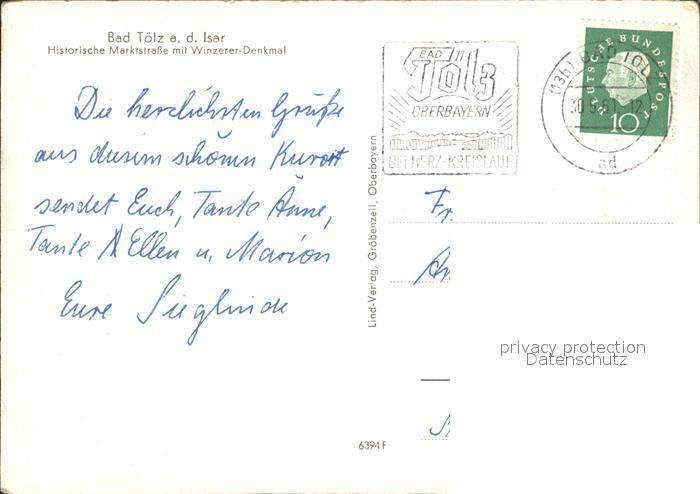 Bad Tölz a. d. Isar
Historische Marktstraße mit Winzerer-Denkmal
Die herzlichsten Grüße
aus diesem schönen Kurort
sendet Euch, Tante Anne,
Tante Ellen u. Marion
Eure Sieglinde
Lind-Verlag, Gröbenzell, Oberbayern
6394 F
BAD Tölz
OBERBAYERN
BEI HERZ-KREISLAUF
(13b) BAD TÖLZ
ad
DEUTSCHE BUNDESPOST
10
Fr.
privacy protection
Datenschutz